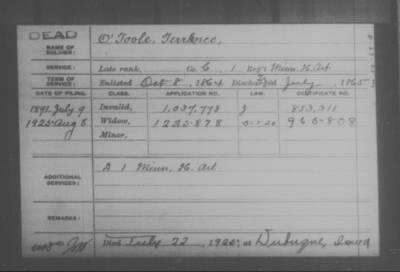 DEAD
NAME OF SOLDIER: O'Toole, Terrence,
SERVICE: Late rank, Co. C, 1 Reg't Minn. H. Art
TERM OF SERVICE: Enlisted Oct 8, 1864 Discharged July, 1865
DATE OF FILING. CLASS. APPLICATION NO. LAW. CERTIFICATE NO.
1891 July 9 Invalid, 1.037.773 J 853,311
1925 Aug 8 Widow, 1235.878 5-1-20 965-808
Minor,
ADDITIONAL SERVICES: D 1 Minn. H. Art
REMARKS:
Died July 22, 1925, at Dubuque, Iowa